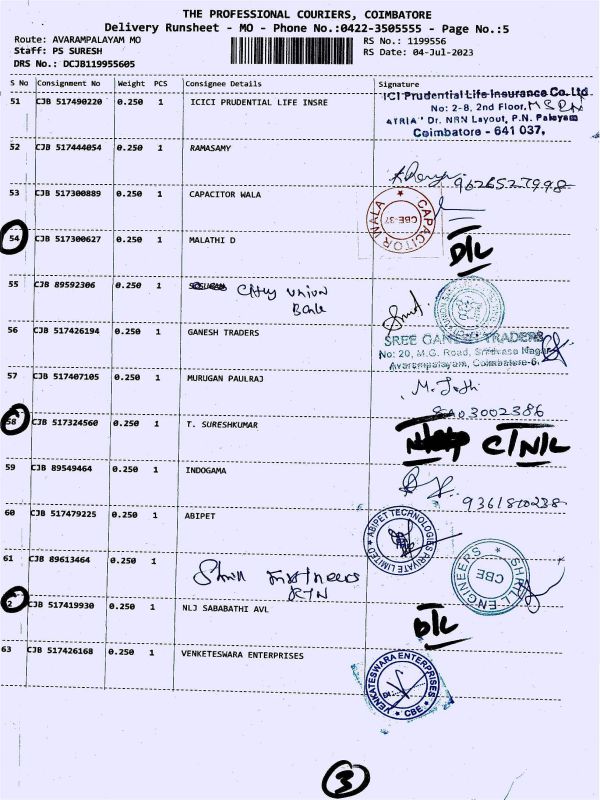 THE PROFESSIONAL COURIERS, COIMBATORE
Delivery Runsheet - MO - Phone No.:0422-3505555 - Page No.:5
Route: AVARAMPALAYAM MO RS No.: 1199556
Staff: PS SURESH RS Date: 04-Jul-2023
DRS No.: DCJB119955605
S No Consignment No Weight PCS Consignee Details Signature
51 CJB 517490220 0.250 1 ICICI PRUDENTIAL LIFE INSRE
ICI Prudential Life Insurance Co. Ltd
No: 2-8, 2nd Floor,
Dr. NRN Layout, P.N. Palayam
Coimbatore - 641 037.
52 CJB 517444054 0.250 1 RAMASAMY
9626527998
53 CJB 517300889 0.250 1 CAPACITOR WALA
CAPACITOR WALA CBE-37
54 CJB 517300627 0.250 1 MALATHI D
D/L
55 CJB 89592306 0.250 1 City Union
Bank
56 CJB 517426194 0.250 1 GANESH TRADERS
SREE GANESH TRADERS
No: 20, M.G. Road, Srinivasa Nagar
Avarampalayam, Coimbatore-6.
57 CJB 517407105 0.250 1 MURUGAN PAULRAJ
58 CJB 517324560 0.250 1 T. SURESHKUMAR
C/N/L
59 CJB 89549464 0.250 1 INDOGAMA
9361810238
60 CJB 517479225 0.250 1 ABIPET
ABIPET TECHNOLOGIES PRIVATE LIMITED
61 CJB 89613464 0.250 1
SHRILL ENGINEERS CBE
2 CJB 517419930 0.250 1 NLJ SABABATHI AVL
D/L
63 CJB 517426168 0.250 1 VENKETESWARA ENTERPRISES
VENKATESWARA ENTERPRISES CBE
3